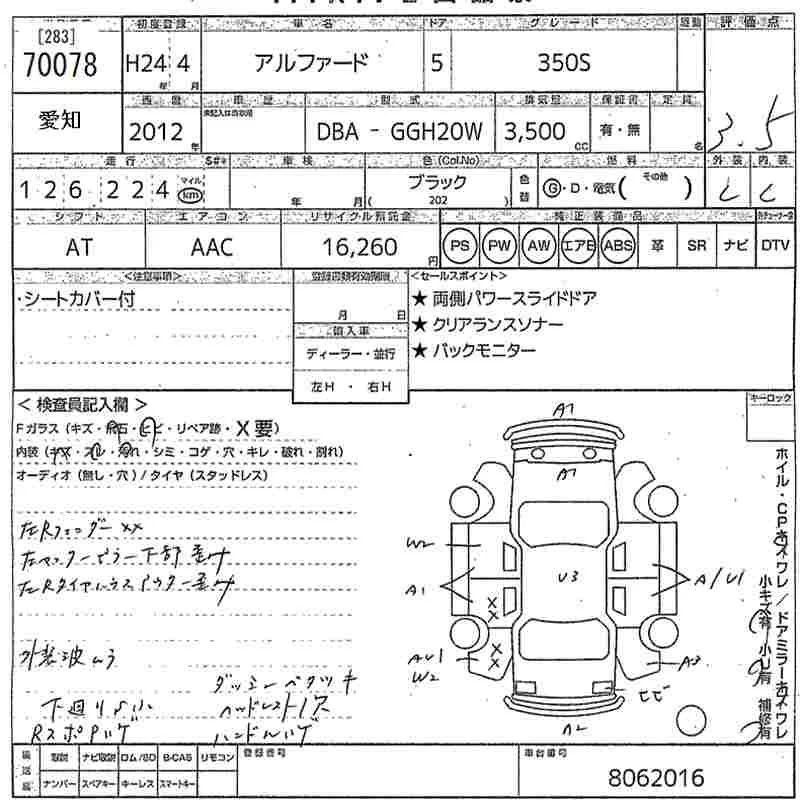 [283]
70078
初度登録 車名 ドア グレード 駆動 評価点
H24 4 アルファード 5 350S
年 月
3.5
愛知
西暦 車歴 型式 排気量 保証書 定員
未記入は自家用
2012 年 DBA - GGH20W 3,500 CC 有・無 名
走行 車検 色(Col.No) 燃料 外装 内装
126,224 マイル km 年 月 ブラック 色替 G・D・電気( その他 )
( 202 )
シフト エアコン リサイクル預託金 純正装備品
AT AAC 16,260 円 PS PW AW エアB ABS 革 SR ナビ DTV
<注意事項> 登録書類有効期限 <セールスポイント>
・シートカバー付
月 日
★ 両側パワースライドドア
★ クリアランスソナー
★ バックモニター
輸入車
ディーラー・並行
左H ・ 右H
キーロック
< 検査員記入欄 >
Fガラス(キズ・飛石・ヒビ・リペア跡・X要)
内装(キズ・スレ・汚れ・シミ・コゲ・穴・キレ・破れ・割れ)
オーディオ(無し・穴)/タイヤ(スタッドレス)
左Rフェンダー XX
左Rタイヤハウスアウター歪み
外装波ムラ
ダッシュベタツキ
下廻りサビ小 ヘッドレスト穴
ハンドルハゲ
A1
A1
W2
A1
U3
A/U1
X
X
X
X
AU1
W2
A3
ヒビ
A2
ホイル・CPキズワレ/ドアミラーキズワレ
小キズ有 小U有 補修有
取説 ナビ取説 ロム/SD B-CAS リモコン
ナンバー スペアキー キーレス スマートキー
登録番号 車台番号
8062016